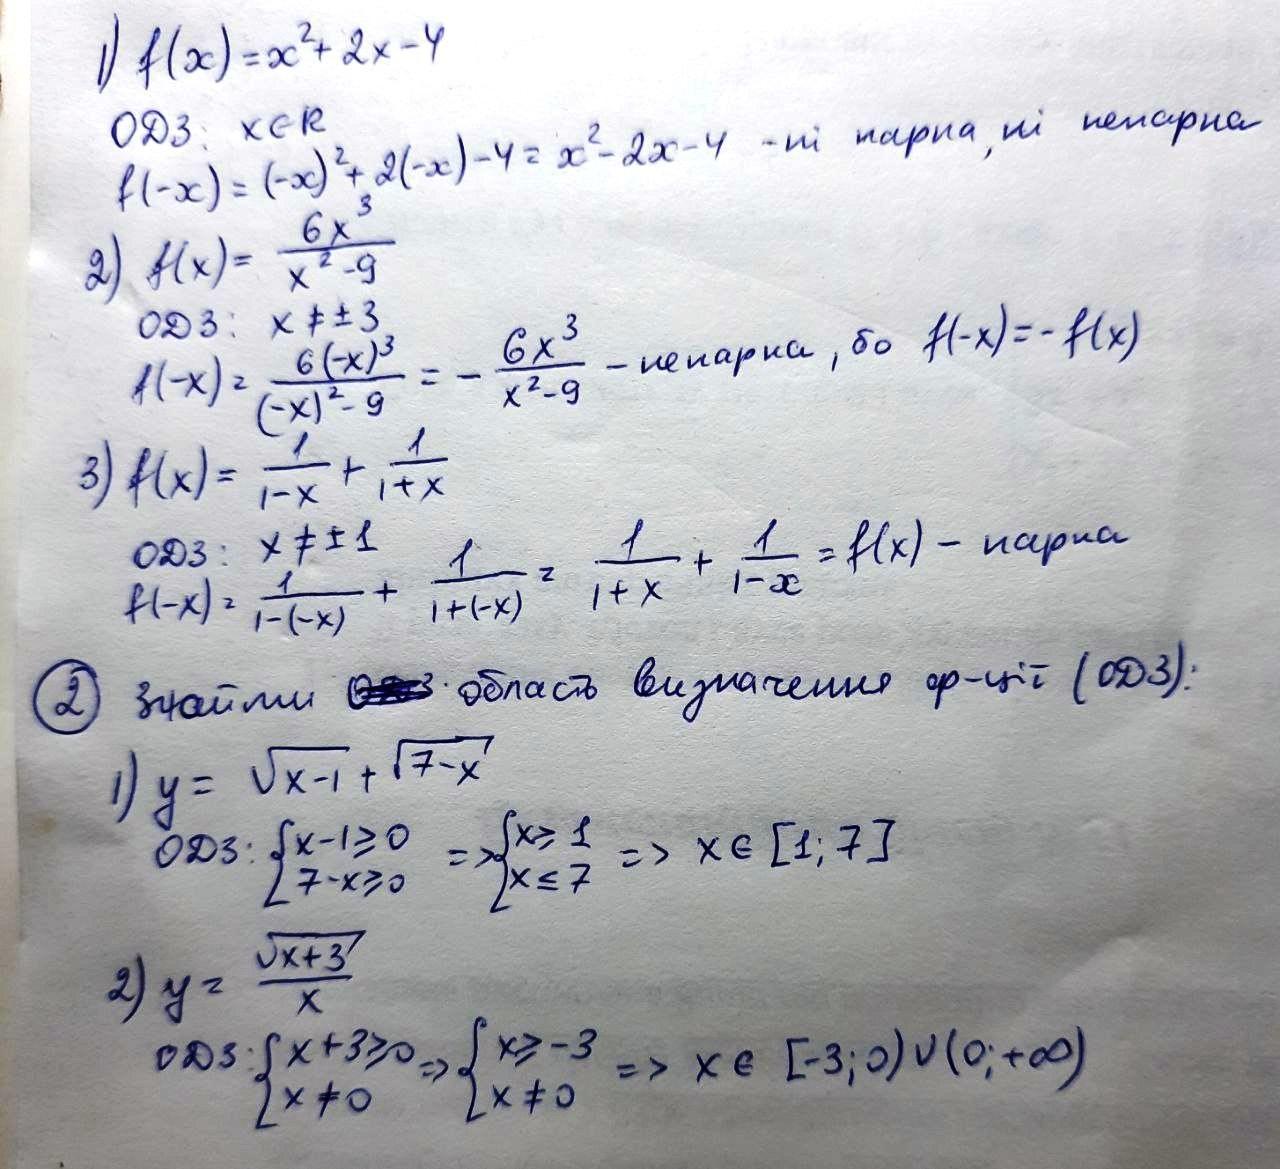 1) f(x) = x² + 2x - 4
ОДЗ: x ∈ R
f(-x) = (-x)² + 2(-x) - 4 = x² - 2x - 4 - ні парна, ні непарна
2) f(x) = 6x³ / (x² - 9)
ОДЗ: x ≠ ± 3
f(-x) = 6(-x)³ / ((-x)² - 9) = - 6x³ / (x² - 9) - непарна, бо f(-x) = - f(x)
3) f(x) = 1 / (1-x) + 1 / (1+x)
ОДЗ: x ≠ ± 1
f(-x) = 1 / (1-(-x)) + 1 / (1+(-x)) = 1 / (1+x) + 1 / (1-x) = f(x) - парна
② Знайти область визначення ф-ції (ОДЗ):
1) y = √(x-1) + √(7-x)
ОДЗ: { x-1 ≥ 0; 7-x ≥ 0 => { x ≥ 1; x ≤ 7 => x ∈ [1; 7]
2) y = √(x+3) / x
ОДЗ: { x+3 ≥ 0; x ≠ 0 => { x ≥ -3; x ≠ 0 => x ∈ [-3; 0) ∪ (0; +∞)